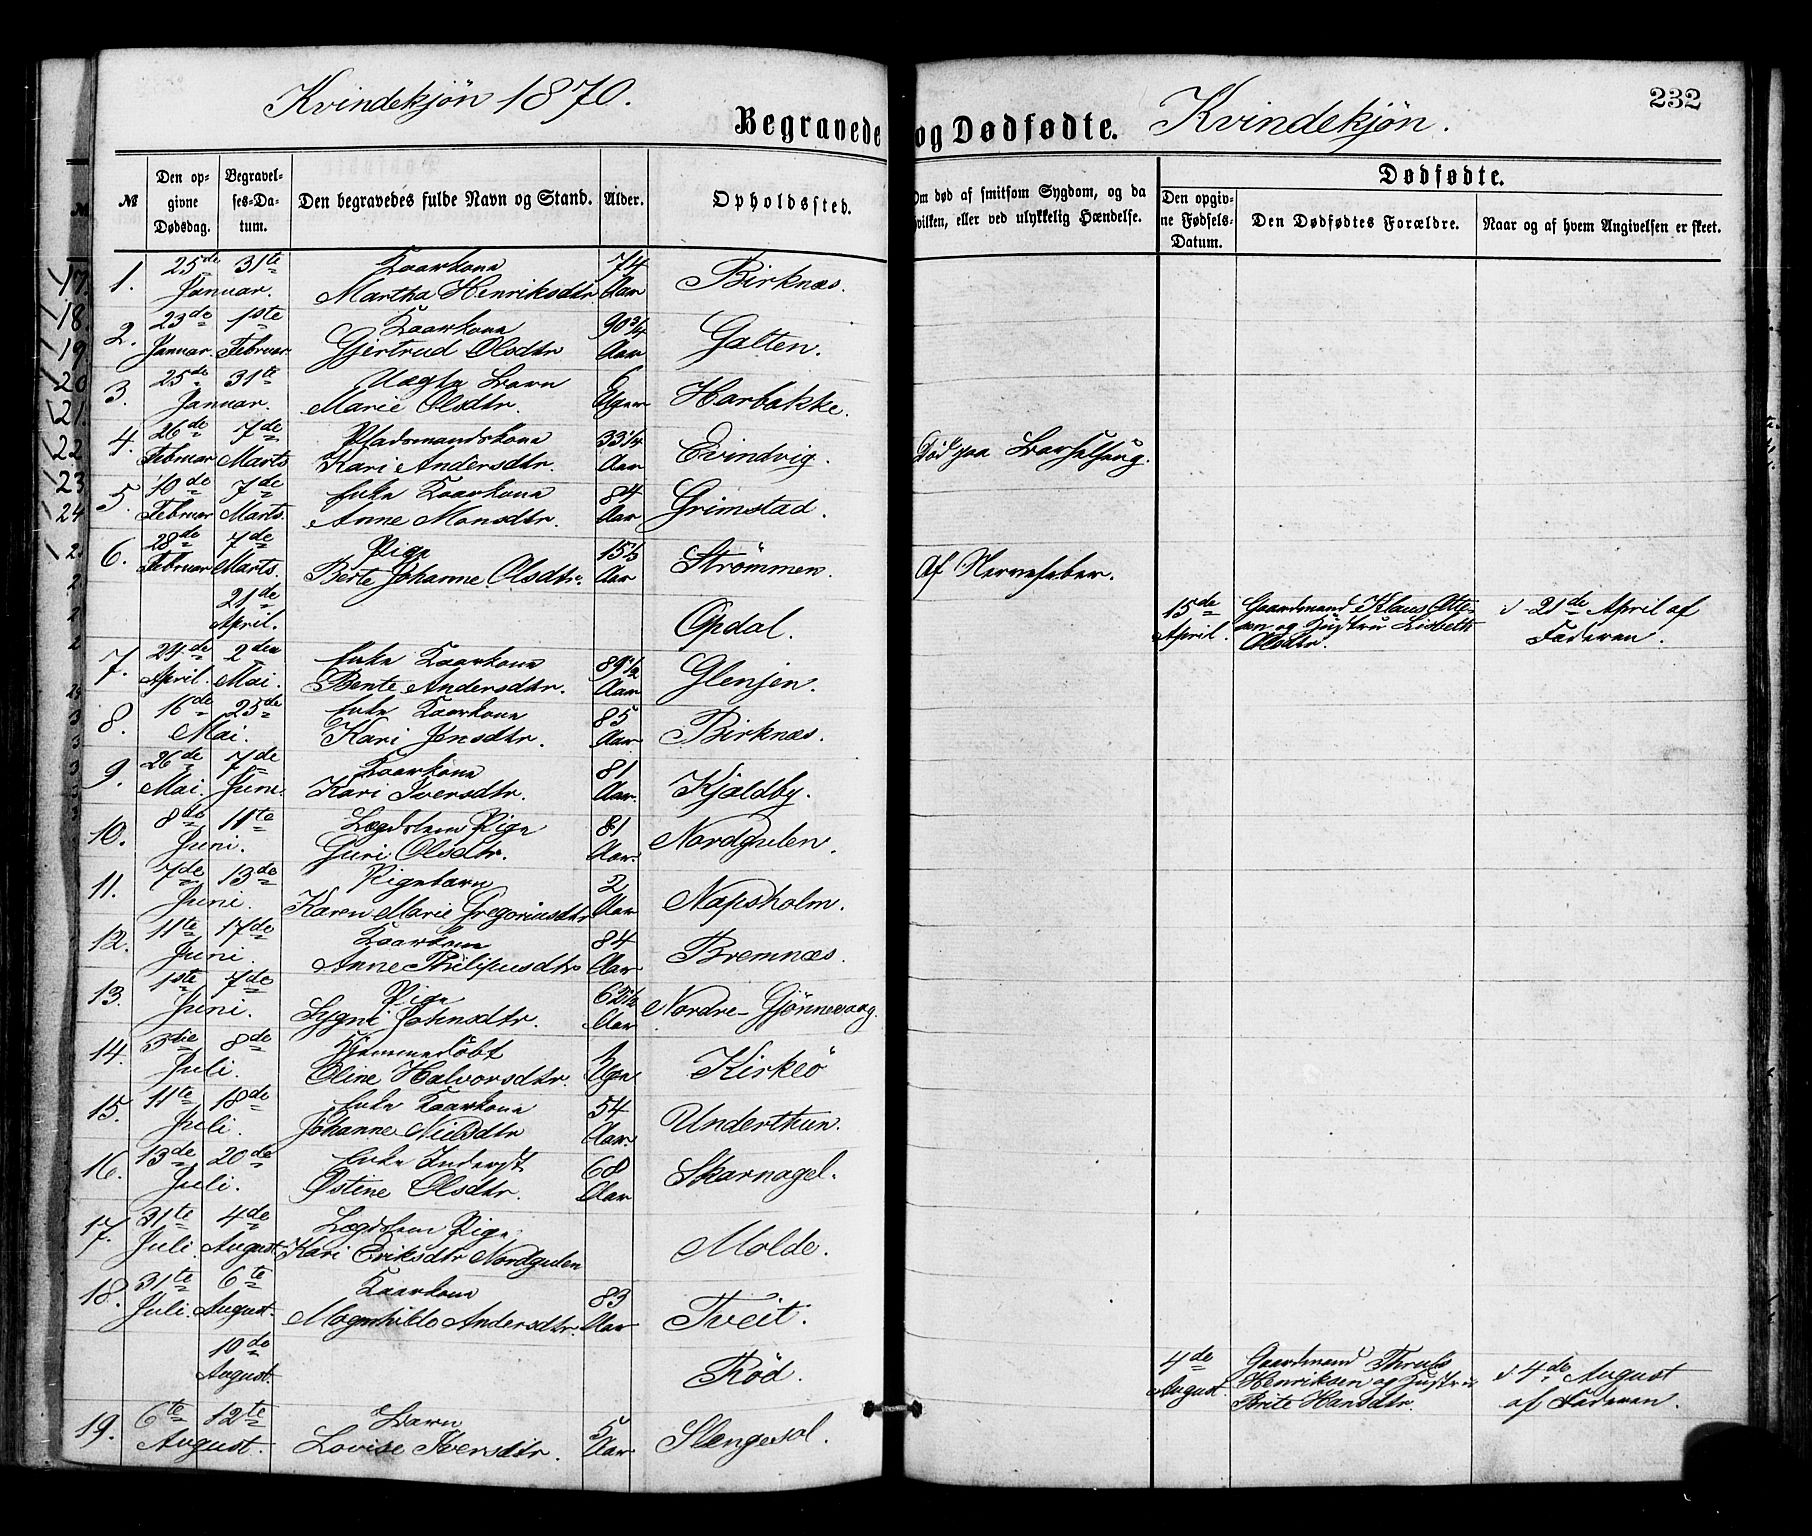 Kvindekjön 1870.
Begravede og Dødfødte.
Kvindekjön.
232
№
Den opgivne Dødsdag.
Begravelses-Datum.
Den begravedes fulde Navn og Stand.
Alder.
Opholdssted.
Om død af smitsom Sygdom, og da
hvilken, eller ved ulykkelig Hændelse.
Dødfødte.
Den opgivne Fødsels-Datum.
Den Dødfødtes Forældre.
Naar og af hvem Angivelsen er skeet.
1. 25de 31te Januar. Kaarkone Martha Henriksdtr 74 Aar Birknæs.
2. 23de Januar. 1ste Februar. Kaarkone Gjertrud Olsdtr 90 3/4 Aar Galten.
3. 25de 31te Januar. Uægte Barn Marie Olsdtr. 6 Uger Harbakke.
4. 26de Februar 7de Marts Pladsmandskone Kari Andersdtr. 33 1/4 Aar Evindvig. Død paa Barselseng.
5. 10de Februar 7de Marts. Enke Kaarkone Anne Monsdtr. 84 Aar Grimstad.
6. 28de Februar 7de Marts. Pige Berte Johanne Olsdtr. 15 1/3 Aar Strømmen. Af Nervefeber.
21de April. Opdal. 15de April. Gaardmand Klaus Otte-
sen og Hustru Lisbeth
Olsdtr. d. 21de April af
Faderen.
7. 24de April. 2den Mai. Enke Kaarkone Bente Andersdtr. 89 1/2 Aar Glenjen.
8. 16de 25de Mai. Enke Kaarkone Kari Jensdtr. 85 Aar Birknæs.
9. 26de Mai. 7de Juni. Kaarkone Kari Iversdtr. 81 Aar. Kjeldby.
10. 8de 11te Juni. Lægdslem Pige Guri Olsdtr. 81 Aar. Nordgulen.
11. 7de 13de Juni. Pigebarn Karen Marie Gregoriusdtr 2 Aar Napsholm.
12. 11te 17de Juni. Kaarkone Anne Philipusdtr 84 Aar Bremnæs.
13. 1ste 7de Juni. Pige Sygni Johnsdtr. 62 1/2 Aar Nordre-Gjønnevaag.
14. 3die 8de Juli. Hjemmedöbt Oline Halvorsdtr. 1 Uge Kirkeö
15. 11te 18de Juli. Enke Kaarkone Johanne Nielsdtr 54 Aar. Underthun.
16. 13de 20de Juli. Enke Inderst Østine Olsdtr. 68 Aar Skarnagel.
17. 31te Juli 4de August Lægdslem Pige Kari Eriksdtr Nordgulen Molde.
18. 31te Juli. 6te August. Kaarkone Magnhilde Andersdtr. 83 Aar Tveit.
10de August. Röd. 4de August. Gaardmand Thrules
Henriksen og Hustru
Brite Hansdtr. d. 4de August
af Faderen.
19. 6te 12te August. Barn Lovise Iversdtr. 5 Aar Slengesol.